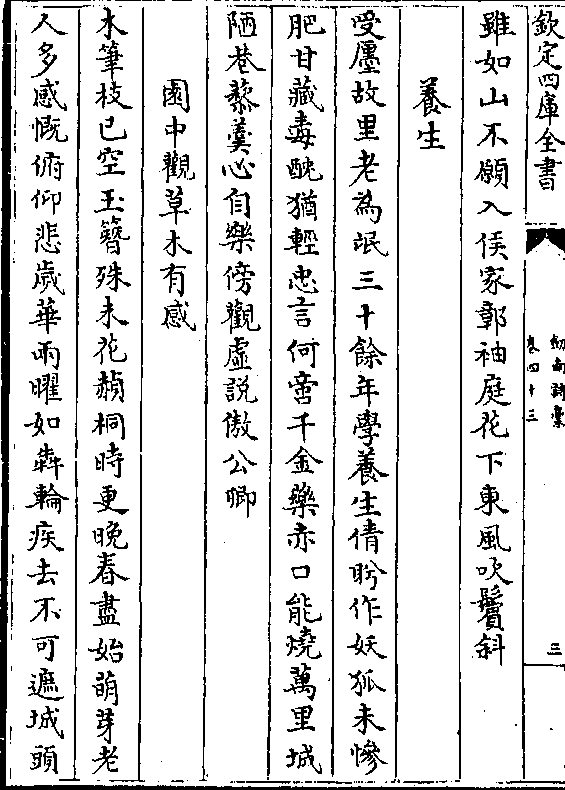 欽定四庫全書
劍南詩稾
卷四十三
三
雖如山不願入侯家郭袖庭花下東風吹鬢斜
養生
受廛故里老為氓三十餘年學養生倩盼作妖狐未慘
肥甘藏毒酖猶輕忠言何啻千金藥赤口能燒萬里城
陋巷藜羹心自樂傍觀虛説傲公卿
園中觀草木有感
木筆枝已空玉簪殊未花赬桐時更晚春盡始萌芽老
人多感慨俯仰悲歲華兩曜如犇輪疾去不可遮城頭